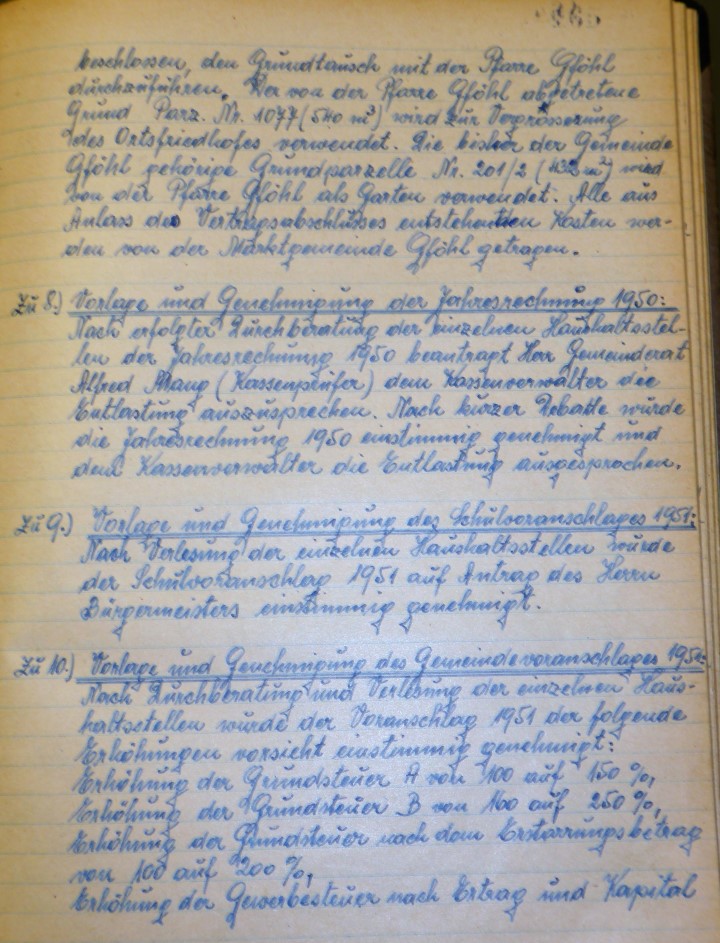 beschlossen, den Grundtausch mit der Pfarre Gföhl
durchzuführen. Der von der Pfarre Gföhl abgetretene
Grund Parz. Nr. 1077 (540 m²) wird zur Vergrösserung
des Ortsfriedhofes verwendet. Die bisher der Gemeinde
Gföhl gehörige Grundparzelle Nr. 201/2 (432 m²) wird
von der Pfarre Gföhl als Garten verwendet. Alle aus
Anlass des Vertragsabschlusses entstehenden Kosten wer-
den von der Marktgemeinde Gföhl getragen.
Zu 8.) Vorlage und Genehmigung der Jahresrechnung 1950:
Nach erfolgter Durchberatung der einzelnen Haushaltsstel-
len der Jahresrechnung 1950 beantragt Herr Gemeinderat
Alfred (Kassenprüfer) dem Kassenverwalter die
Entlastung auszusprechen. Nach kurzer Debatte wurde
die Jahresrechnung 1950 einstimmig genehmigt und
dem Kassenverwalter die Entlastung ausgesprochen.
Zu 9.) Vorlage und Genehmigung des Schulvoranschlages 1951:
Nach Verlesung der einzelnen Haushaltsstellen wurde
der Schulvoranschlag 1951 auf Antrag des Herrn
Bürgermeisters einstimmig genehmigt.
Zu 10.) Vorlage und Genehmigung des Gemeindevoranschlages 1951:
Nach Durchberatung und Verlesung der einzelnen Haus-
haltsstellen wurde der Voranschlag 1951 der folgende
Erhöhungen vorsieht einstimmig genehmigt:
Erhöhung der Grundsteuer A von 100 auf 150 %,
Erhöhung der Grundsteuer B von 160 auf 250 %,
Erhöhung der Grundsteuer nach dem Erstarrungsbetrag
von 100 auf 200 %,
Erhöhung der Gewerbesteuer nach Ertrag und Kapital